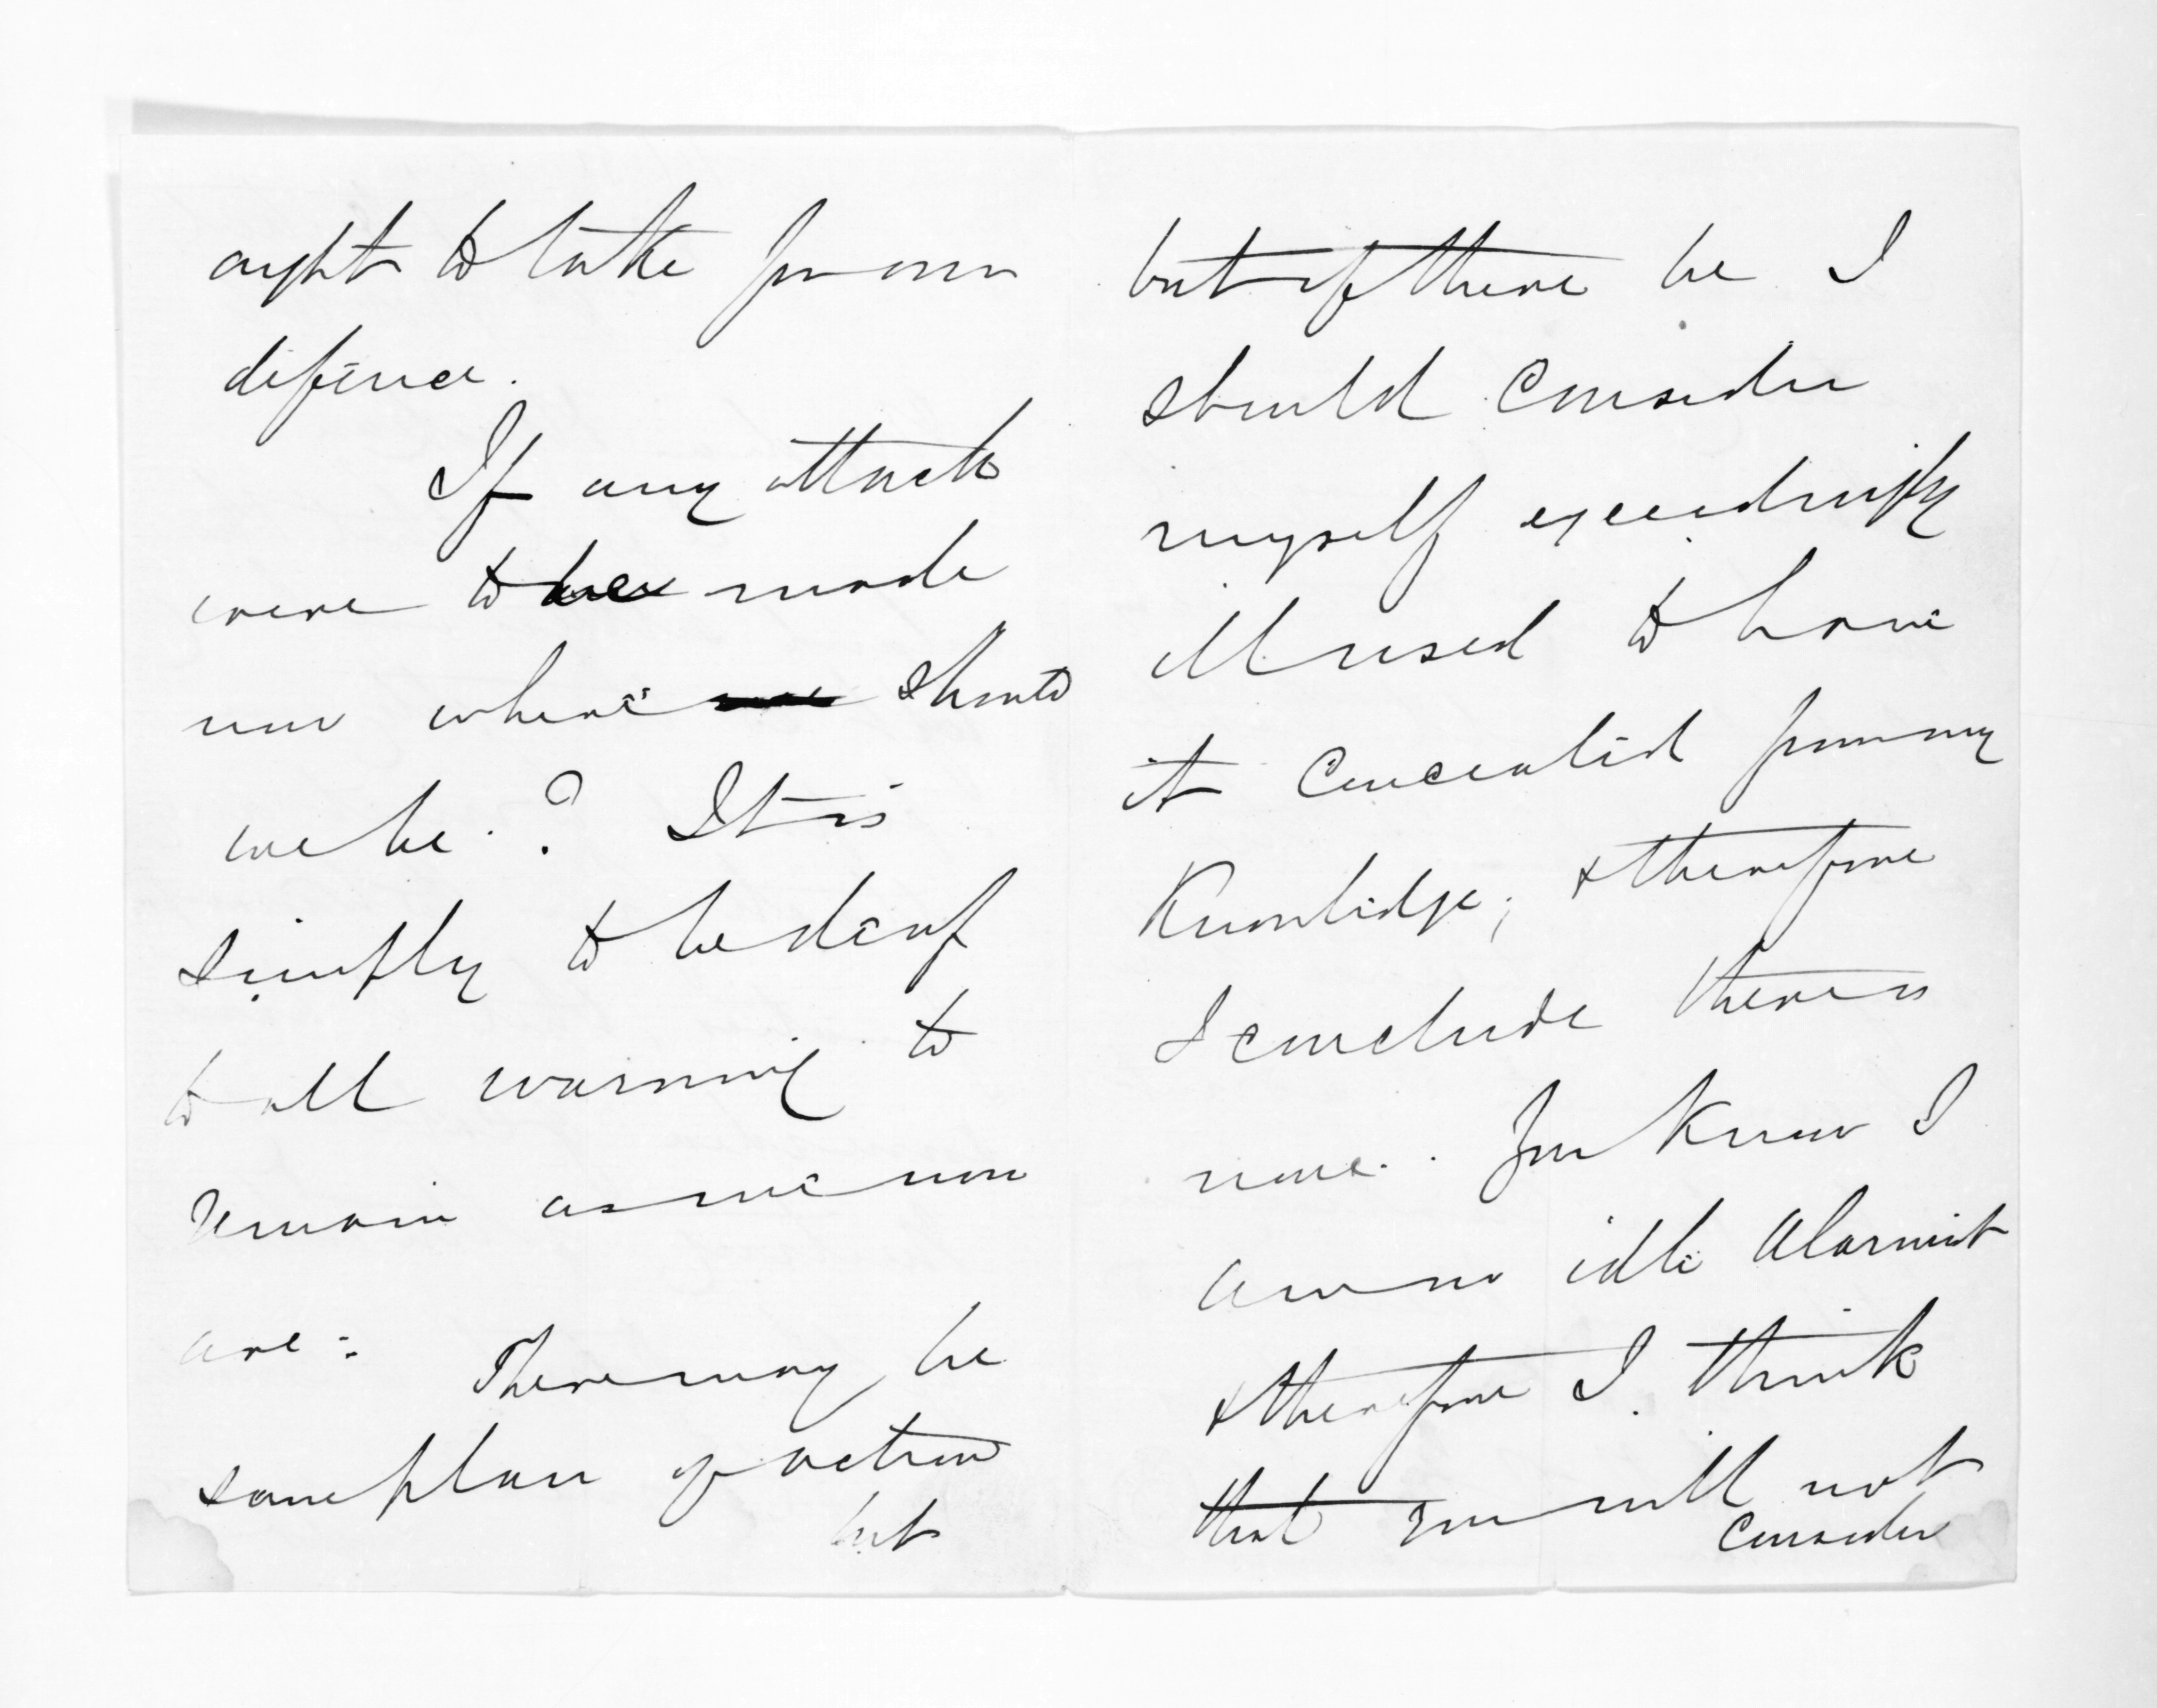 ought to take for our
defence.
If any attack
were to be made
now where should
we be? It is
simply to be deaf
to all warning to
remain as we now
are. There may be
some plan of action
but
but if there be I
should consider
myself exceedingly
ill used to have
it concealed from my
Knowledge; & therefore
I conclude there is
none. You Know I
am no idle Alarmist
& therefore I think
that you will not
consider